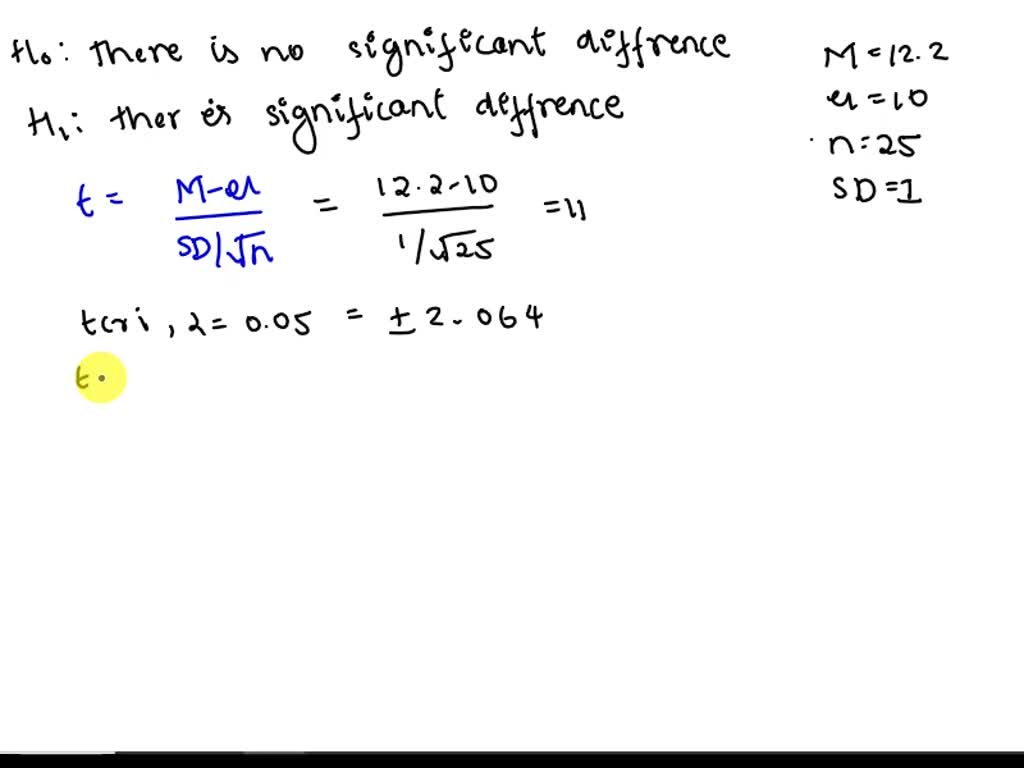 H₀: There is no significant diffrence
H₁: ther is significant diffrence
M = 12.2
μ = 10
n = 25
SD = 1
t = M-μ / SD/√n = 12.2-10 / 1/√25 = 11
tcri, α = 0.05 = ± 2.064
t